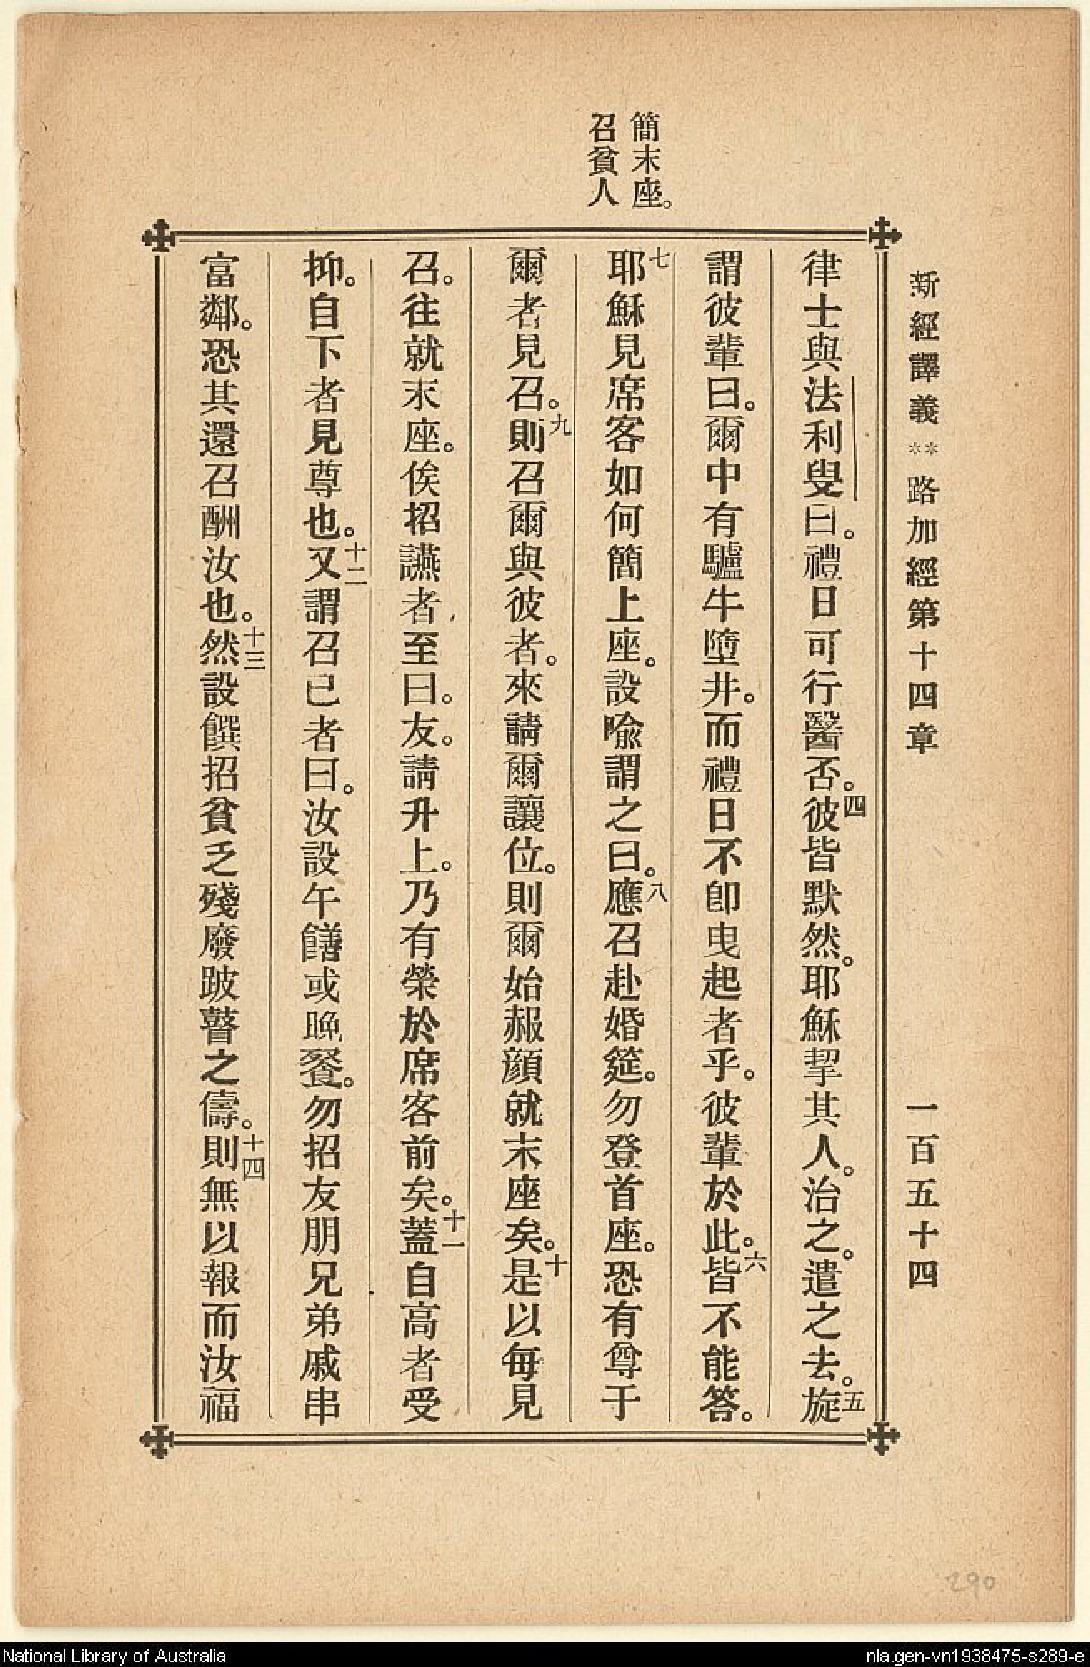 新經譯義 ** 路加經第十四章 一百五十四
簡末座。
召貧人
律士與法利叟曰。禮日可行醫否。四彼皆默然。耶穌挈其人。治之。遣之去。五旋
謂彼輩曰。爾中有驢牛墮井。而禮日不卽曳起者乎。彼輩於此。六皆不能答。
七耶穌見席客如何簡上座。設喩謂之曰。八應召赴婚筵。勿登首座。恐有尊于
爾者見召。九則召爾與彼者。來請爾讓位。則爾始赧顔就末座矣。十是以每見
召。往就末座。俟招讌者至曰。友。請升上。乃有榮於席客前矣。十一蓋自高者受
抑。自下者見尊也。十二又謂召已者曰。汝設午饍或晚餐。勿招友朋兄弟戚串
富鄰。恐其還召酬汝也。十三然設饌招貧乏殘廢跛瞽之儔。十四則無以報而汝福
290
National Library of Australia
nla.gen-vn1938475-s289-e